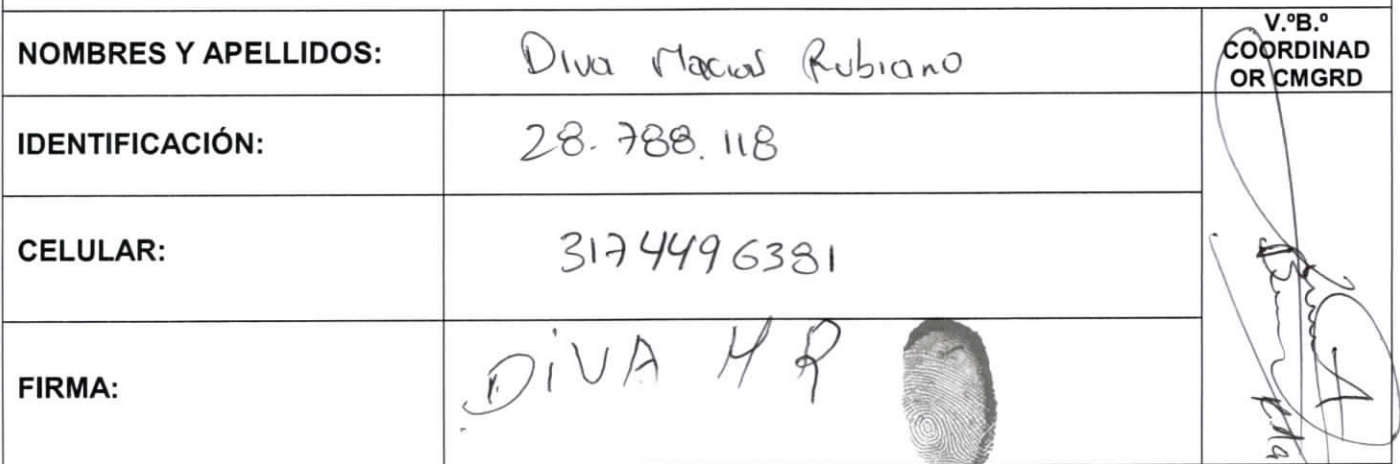 NOMBRES Y APELLIDOS: Diva Macias Rubiano
V.ºB.º
COORDINAD
OR CMGRD
IDENTIFICACIÓN: 28.788.118
CELULAR: 3174496381
FIRMA: DiVA M R